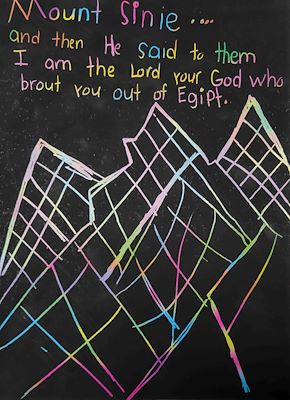 Mount Sinie....
and then He said to them
I am the Lord your God who
brout you out of Egipt.